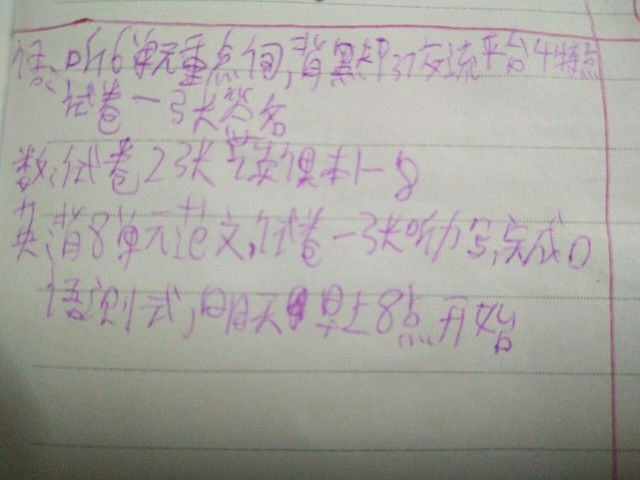 语:听6单元重点词,背默P37交流平台4特点
试卷一3张签名
数:试卷23张写实课本1-8
英:背8单元范文,试卷一3张听力写,完成口
语测试,明天早上8点开始